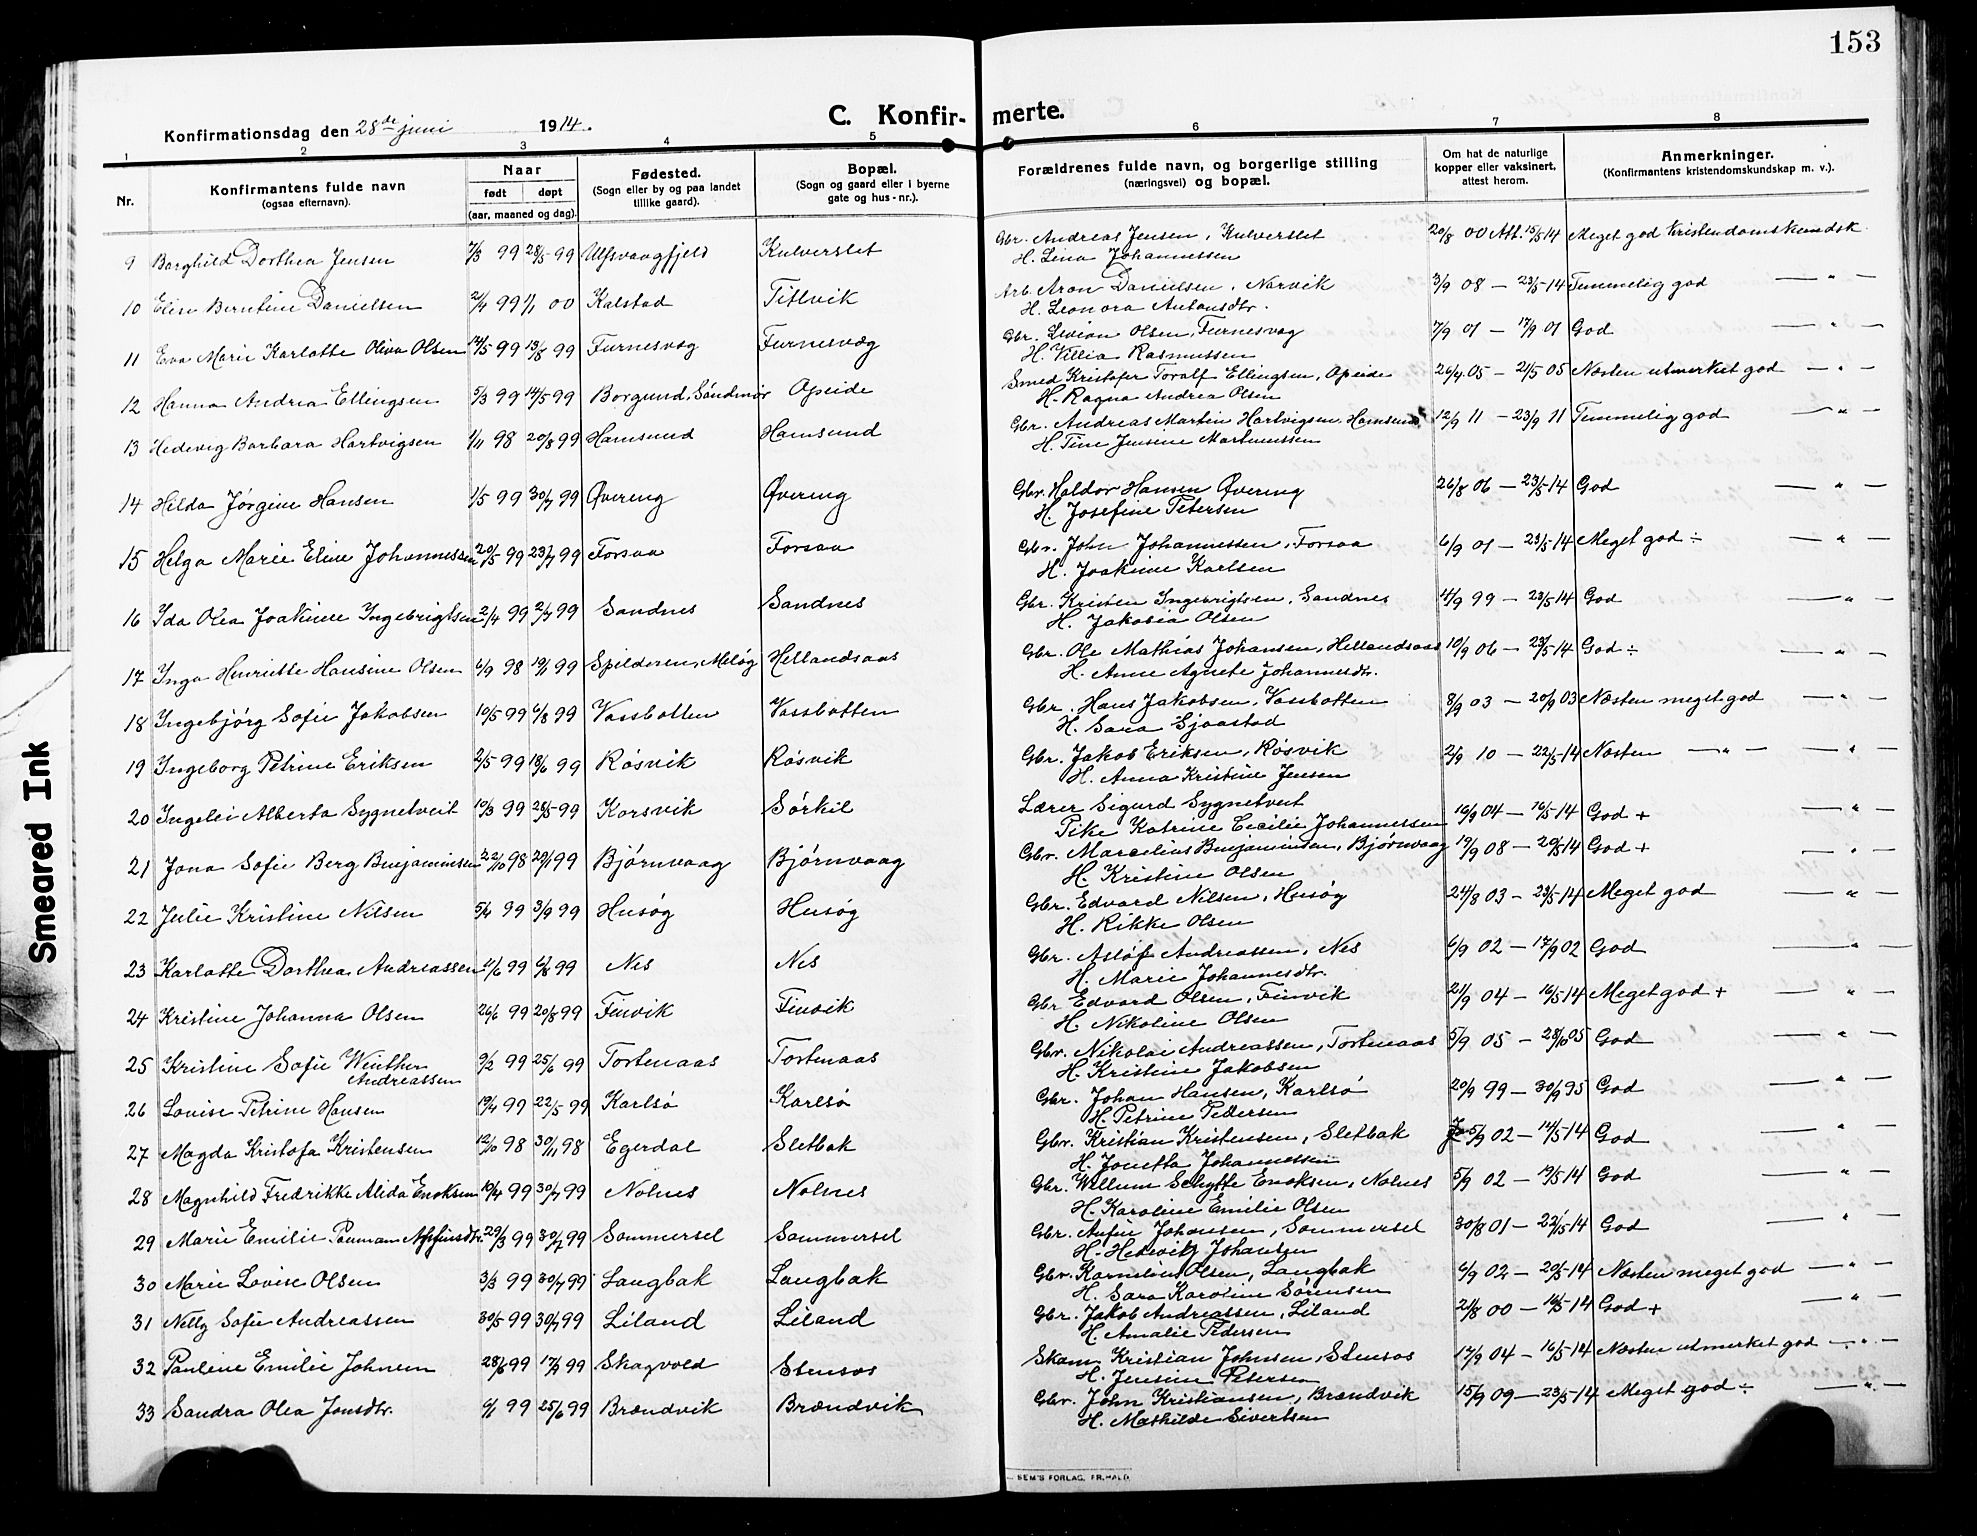 153
Konfirmationsdag den 28de juni 1914.
C. Konfirmerte.
1 2 3 4 5 6 7 8
Nr.
Konfirmantens fulde navn
(ogsaa efternavn).
Naar
født døpt
(aar, maaned og dag).
Fødested.
(Sogn eller by og paa landet
tillike gaard).
Bopæl.
(Sogn og gaard eller i byerne
gate og hus-nr.).
Forældrenes fulde navn, og borgerlige stilling
(næringsvei) og bopæl.
Om hat de naturlige
kopper eller vaksinert,
attest herom.
Anmerkninger.
(Konfirmantens kristendomskundskap m. v.).
9 Borghild Dorthea Jensen 7/3 99 28/5 99 Ulfsvaagfjeld Kulverslet Gbr. Andreas Jensen, Kulverslet 20/8 00 Att. 15/5 14 Meget god Kristendomskundsk.
H. Lina Johannessen
10 Elise Berntine Danielsen 2/4 99 1/1 00 Kalstad Tittvik Arb. Aron Danielsen, Narvik 3/9 08 — 23/5 14 Temmelig god — " —
H. Leonora Antonsdtr.
11 Eva Marie Karlotte Oliva Olsen 14/5 99 13/8 99 Furnesvag Furnesvæg Gbr. Livian Olsen, Furnesvag 7/9 01 — 17/9 01 God — " —
H. Villia Rasmussen
12 Hanna Andrea Ellingsen 5/3 99 14/5 99 Borgund, Søndmør Opeide Smed Kristofer Toralf Ellingsen, Opeide 26/4 05 — 2/5 05 Næsten utmerket god — " —
H. Ragna Andrea Olsen
13 Hedevig Barbara Hartvigsen 1/11 98 20/8 99 Hamsund Hamsund Gbr. Andreas Martin Hartvigsen, Hamsund 12/9 11 — 23/9 11 Temmelig god — " —
H. Tine Jensine Martinussen
14 Hilda Jørgine Hansen 1/5 99 30/7 99 Øvereng Øvereng Gbr. Haldor Hansen Øvereng 26/8 06 — 23/5 14 God — " —
H. Josefine Petersen
15 Helga Marie Eline Johannessen 20/5 99 23/7 99 Forsaa Forsaa Gbr. John Johannessen, Forsaa 6/9 01 — 23/5 14 Meget god ÷ — " —
H. Joakime Karlsen
16 Ida Olea Joakime Ingebrigtsen 2/4 99 2/7 99 Sandnes Sandnes Gbr. Kristen Ingebrigtsen, Sandnes 4/9 99 — 23/5 14 God — " —
H. Jakobia Olsen
17 Inga Henriette Hansine Olsen 6/9 98 19/11 99 Spilderen, Meløy Hellandsaas Gbr. Ole Mathias Johansen, Hellandsaas 10/9 06 — 23/5 14 God ÷ — " —
H. Anne Agnete Johannesdtr.
18 Ingebjørg Sofie Jakobsen 10/5 99 6/8 99 Vassbotten Vassbotten Gbr. Hans Jakobsen, Vassbotten 8/9 03 — 20/9 03 Næsten meget god — " —
H. Sara Sjaastad
19 Ingeborg Petrine Eriksen 2/5 99 18/6 99 Røsvik Røsvik Gbr. Jakob Eriksen, Røsvik 2/9 10 — 22/5 14 Næsten — " — — " —
H. Anna Kristine Jensen
20 Ingelei Alberta Sygnetveit 10/3 99 28/5 99 Korsvik Sørkil Lærer Sigurd Sygnetveit 16/9 04 — 16/5 14 God + — " —
Pike Katrine Cecilie Johannessen
21 Jona Sofie Berg Benjaminsen 22/10 98 29/1 99 Bjørnvaag Bjørnvaag Gbr. Marcelius Benjaminsen, Bjørnvaag 17/9 08 — 20/5 14 God + — " —
H. Kristine Olsen
22 Julie Kristine Nilsen 5/4 99 3/9 99 Husøy Husøy Gbr. Edvard Nilsen, Husøy 24/8 03 — 23/5 14 Meget god — " —
H. Rikke Olsen
23 Karlotte Dorthea Andreassen 11/6 99 6/8 99 Nes Nes Gbr. Asløf Andreassen, Nes 6/9 02 — 17/9 02 God — " —
H. Marie Johannesdtr.
24 Kristine Johanna Olsen 26/6 99 20/8 99 Finvik Finvik Gbr. Edvard Olsen, Finvik 21/9 04 — 16/5 14 Meget god + — " —
H. Nikoline Olsen
25 Kristine Sofie Winther Andreassen 9/2 99 25/6 99 Tortenaas Tortenaas Gbr. Nikolai Andreassen, Tortenaas 5/9 05 — 28/10 05 God — " —
H. Kristine Jakobsen
26 Lovise Petrine Hansen 19/4 99 22/5 99 Karlsø Karlsø Gbr. Johan Hansen, Karlsø 20/9 99 — 30/9 95 God — " —
H. Petrine Pedersen
27 Magda Kristofa Kristensen 12/10 98 30/11 98 Egerdal Sletbak Gbr. Kristian Kristensen, Sletbak 5/9 02 — 14/5 14 God — " —
H. Jonetta Johannessen
28 Magnhild Fredrikke Alida Enoksen 10/4 99 30/7 99 Nolnes Nolnes Gbr. Willum Schytte Enoksen, Nolnes 5/9 02 — 19/5 14 God — " —
H. Karoline Emilie Olsen
29 Marie Emilie Paumann 29/3 99 30/7 99 Sommersel Sammersel Gbr. Anfin Johansen, Sommersel 30/8 01 — 22/5 14 God — " —
H. Hedevig Johansen
30 Marie Lovise Olsen 3/3 99 30/7 99 Langbak Langbak Gbr. Kornelius Olsen, Langbak 6/9 02 — 20/5 14 Næsten meget god — " —
H. Sara Karoline Sørensen
31 Nelly Sofie Andreassen 30/5 99 30/7 99 Liland Liland Gbr. Jakob Andreassen, Liland 21/8 00 — 16/5 14 God + — " —
H. Amalie Pedersen
32 Pauline Emilie Johnsen 28/6 99 17/9 99 Skagvold Stensos Skom. Kristian Johnsen, Stensos 17/9 04 — 16/5 14 Næsten utmerket god — " —
H. Jensine Petersen
33 Sandra Olea Jonsdtr. 6/1 99 25/6 99 Brændvik Brændvik Gbr. John Kristiansen, Brændvik 15/9 09 — 23/5 14 Meget god ÷ — " —
H. Mathilde Sivertsen
SEM'S FORLAG, FR.HALD.
Smeared Ink